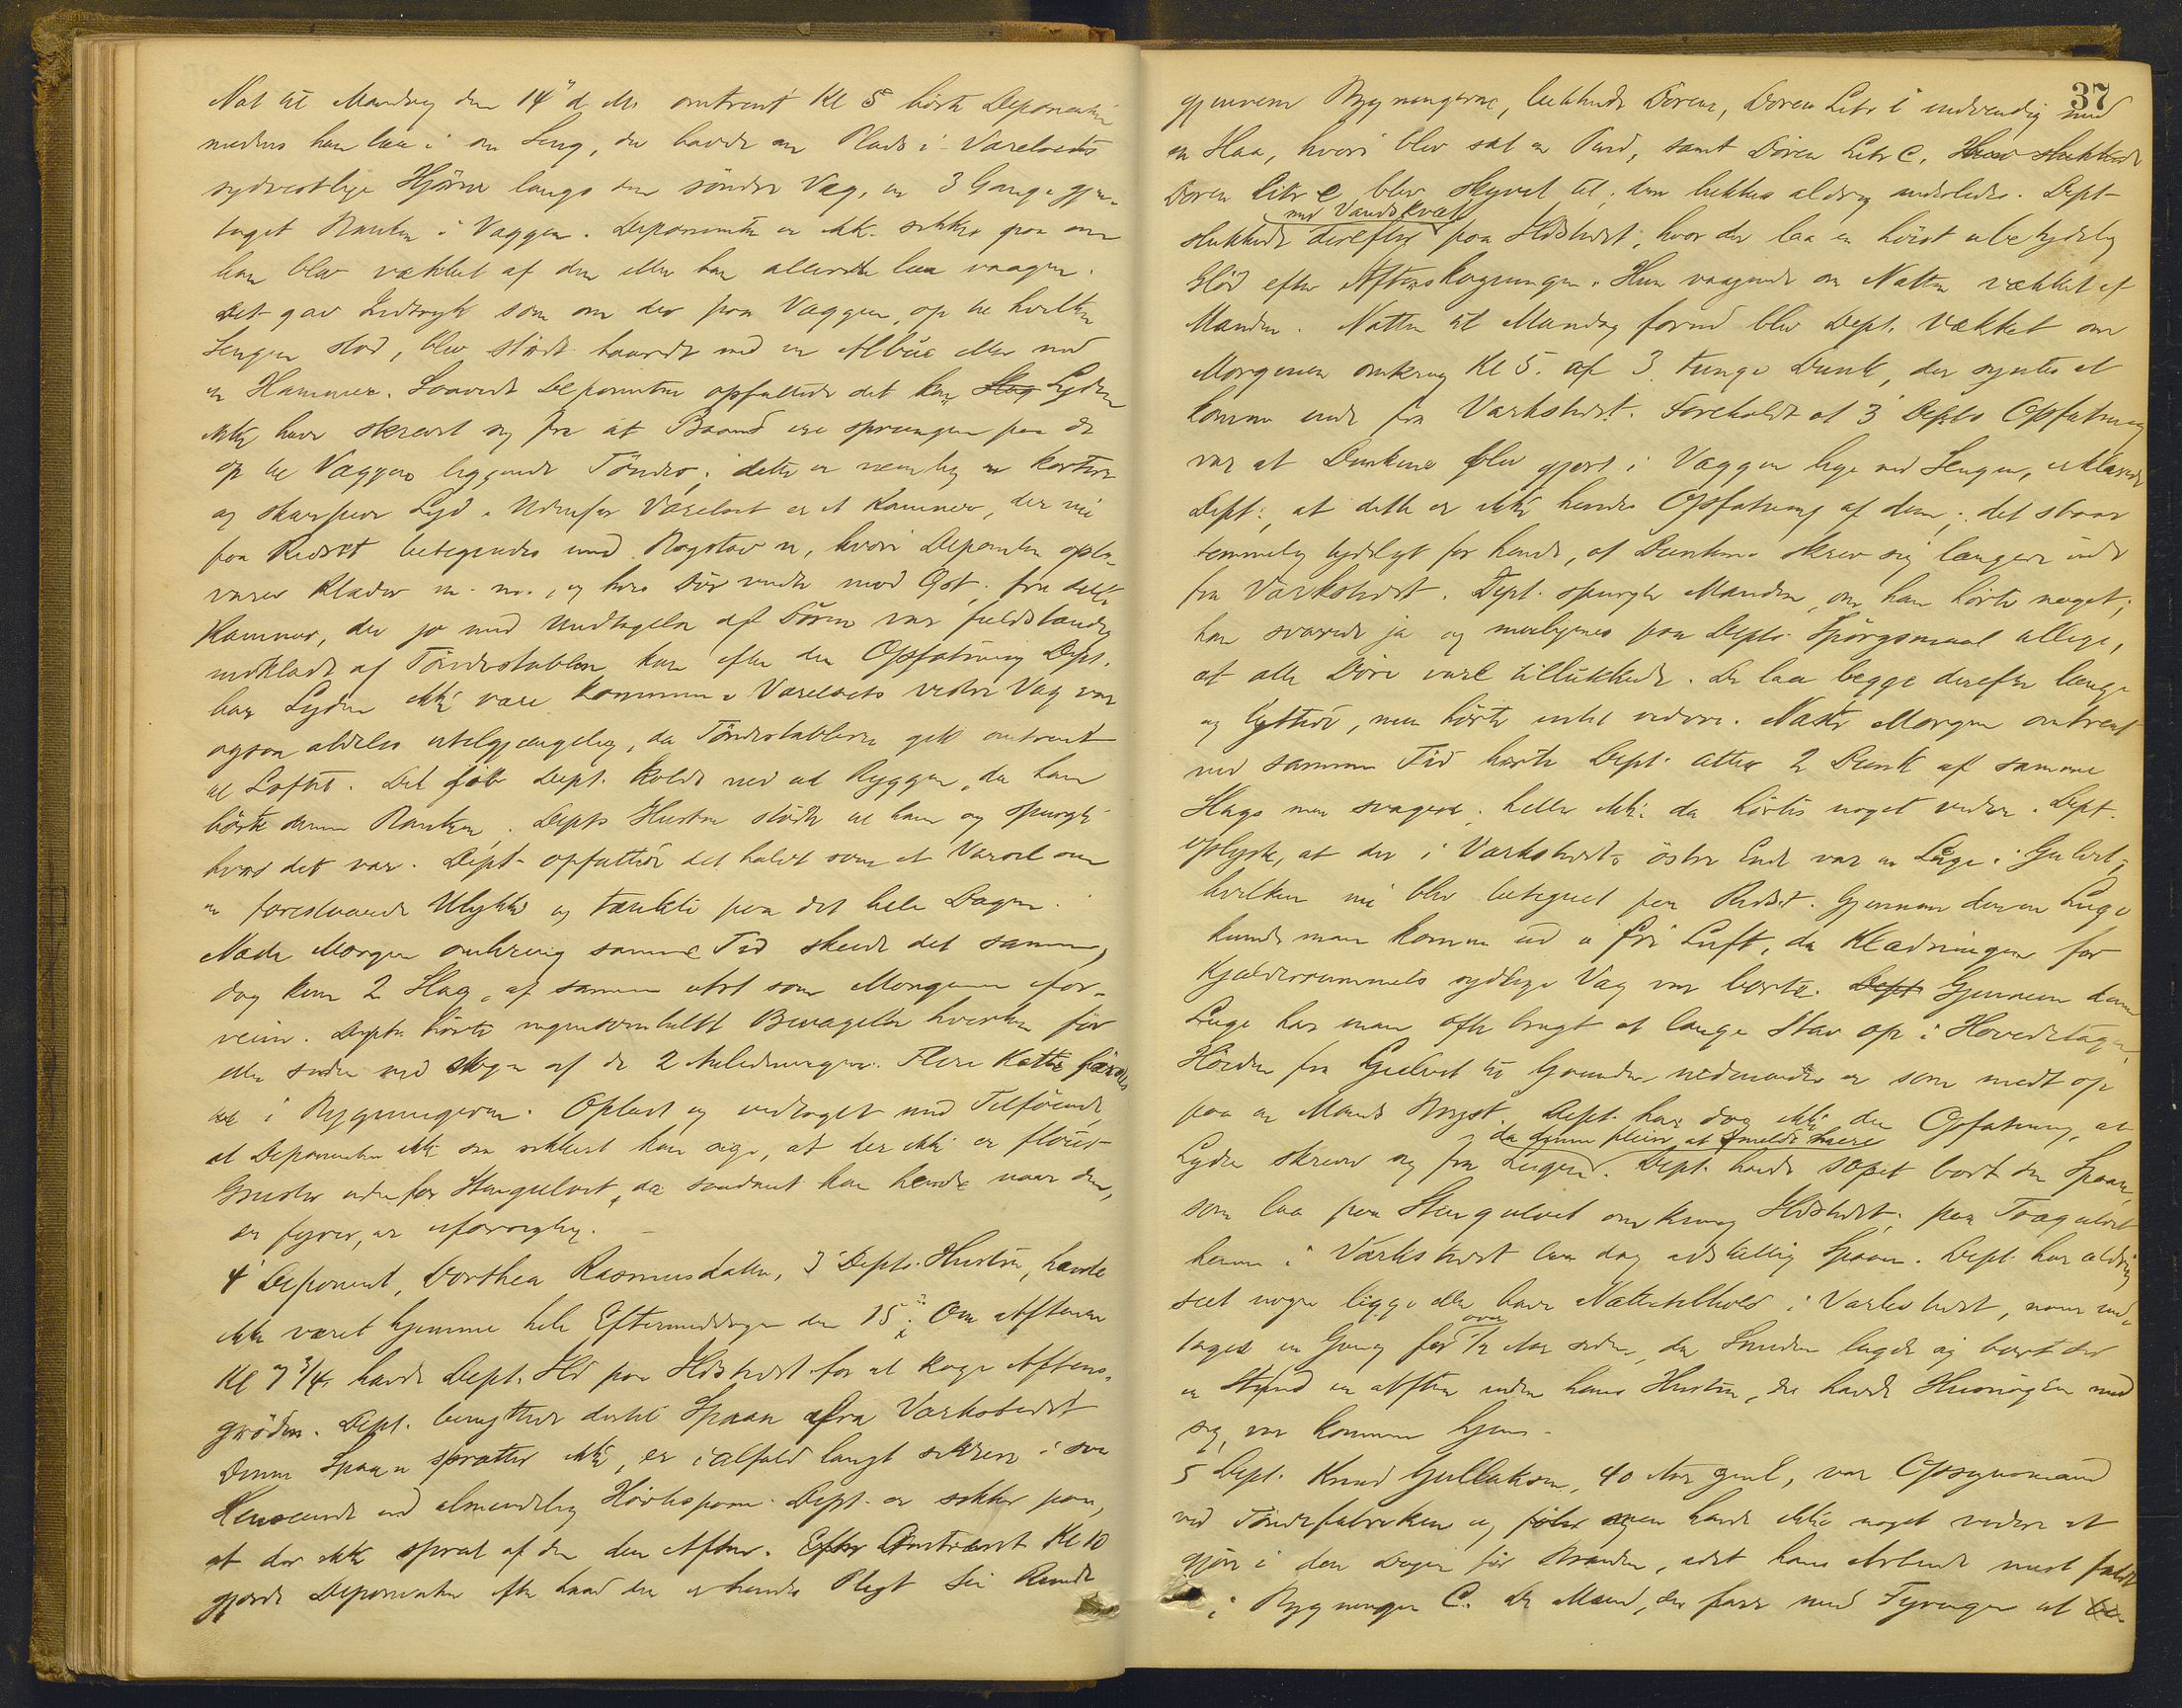 Nat til Mandag den 14de d. Ms omtrent Kl 5 hörte Deponenten
medens han laa i sin Seng, der havde sin Plads i Værelsets
sydvestlige Hjørne langs den söndre Væg, en 3 Gange gjen-
taget Banken i Væggen. Deponenten er ikke sikker paa om
han blev vækket af den eller han allerede laa vaagen.
Det gav Indtryk som om der paa Væggen, op til hvilken
Sengen stod, blev stödt haardt med en Albue eller med
en Hammer. Saavidt Deponenten opfattede det kan Slag Lyden
ikke have skrevet sig fra at Baand ere sprungne paa de
op til Væggen liggende Tönder; dette er nemlig en kortere
og skarpere Lyd. Udenfor Værelset er et Kammer, der nu
paa Ridset betegnedes med Bogstav n, hvori Deponenten opbe-
varer Klæder m. m., og hvis Dör vender mod Öst; fra dette
Kammer, der jo med Undtagelse af Dören var fuldstændig
indeladt af Töndestabler kan efter den Opfatning Dept.
har Lyden ikke være kommen. Værelsets vestre Væg var
ogsaa aldeles utilgjængelig, da Töndestablerne gik omtrent
til Loftet. Det gik Dept. koldt ned ad Ryggen, da han
hörte denne Banken. Depts Hustru stödte til ham og spurgte
hvad det var. Dept. opfattede det halvt som et Varsel om
en forestaaende Ulykke og tænkte paa det hele Dagen.
Næste Morgen omkring samme Tid skede det samme,
dog kun 2 Slag, af samme Art som Morgenen for-
veien. Depten hörte ingensomhelst Bevægelse hverken för
eller siden ved nogen af de 2 Anledninger. Flere Katte færdes
der i Bygningerne. Oplæst og vedtaget med Tilföiende,
at Deponenten ikke saa sikkert kan sige, at der ikke er flöiet
Gnister udenfor Stengulvet, da saadant kan hænde naar den,
der fyrer, er uforsigtig.
4de Deponent, Dorthea Rasmusdatter, 3de Depts. Hustru, havde
ikke været hjemme hele Eftermiddagen den 15de. Om Aftenen
Kl 7 3/4 havde Dept. Ild paa Ildstedet for at koge Aftens-
gröden. Dept. benyttede dertil Spaan fra Værkstedet
Denne Spaan spratter ikke, er ialfald langt sikrere i saa
Henseende end almindelig Hövlspaan. Dept. er sikker paa,
at der ikke sprat af den den Aften. Efter Omtrent Kl 10
gjorde Deponenten efter hvad der er hendes Pligt sin Runde
37
gjennem Bygningerne, lukkede Dörene, Dören Litr i indvendig med
en Haa, hvori blev sat en Pind, samt Dören Litr C. Hun slukkede
Dören Litr e blev skyvet til; den lukkes aldrig anderledes. Dept.
med Vandskvæt
slukkede derefter paa Ildstedet, hvor der laa en höist ubetydelig
Glöd efter Aftenskogningen. Hun vaagnede om Natten vækket af
Manden. Natten til Mandag forud blev Dept. vækket om
Morgenen omkring Kl 5. af 3 tunge Dunk, der syntes at
komme inde fra Værkstedet. Foreholdt at 3de Depts Opfatning
var at Dunkene blev gjort i Væggen lige ved Sengen, erklærede
Dept., at dette er ikke hendes Opfatning af dem; det staar
temmelig tydeligt for hende, at Dunkene skrev sig længere inde
fra Værkstedet. Dept. spurgte Manden, om han hörte noget;
han svarede ja og meddelte paa Depts Spörgsmaal tillige,
at alle Döre vare tillukkede. De laa begge derefter længe
og lyttede, men hörte intet videre. Næste Morgen omtrent
ved samme Tid hörte Dept. atter 2 Dunk af samme
Slags men svagere; heller ikke da hörtes noget videre. Dept.
oplyste, at der i Værkstedets östre Ende var en Luge i Gulvet,
hvilken nu blev betegnet paa Ridset. Gjennem denne Luge
kunde man komme ud i fri Luft, da Klædningen for
Kjælderrummets sydlige Væg var borte. Dept Gjennem denne
Luge har man ofte bragt at lange Stav op i Hovedetagen.
Höiden fra Gulvet til Grunden nedenunder er som midt op
paa en Mands Bryst. Dept. har dog ikke den Opfatning, at
da denne pleier at smelde mere
Lyden skrev sig fra Lugen. Dept. havde sopet bort den Spaan,
som laa paa Stengulvet omkring Ildstedet; paa Trægulvet
henne i Værkstedet laa dog adskillig Spaan. Dept. har aldrig
seet nogen ligge eller have Nattetilhold i Værkstedet, naar und-
over
tages en Gang for 1/2 Aar siden, da Smeden lagde sig bort der
en Stund en Aften inden hans Hustru, der havde Husnöglen med
sig, var kommen hjem.
5 Dept. Knud Gullaksen, 40 Aar gml, var Opsynsmand
ved Töndefabriken og men havde ikke noget videre at
gjöre i den Dagen för Branden, idet hans Arbeide mest faldt
i Bygningen C. De Mænd, der fare med Fyringen at